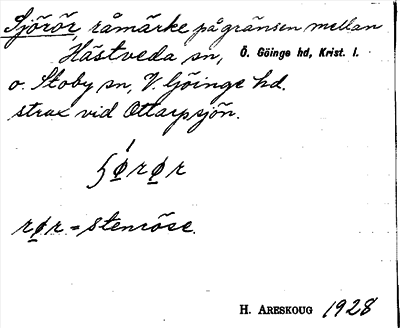 Sjörör, råmärke på gränsen mellan
Hästveda sn, Ö. Göinge hd, Krist. l.
o. Stoby sn, V. Göinge hd.
strax vid Ottarpsjön.
rør = stenröse.
H. ARESKOUG 1928